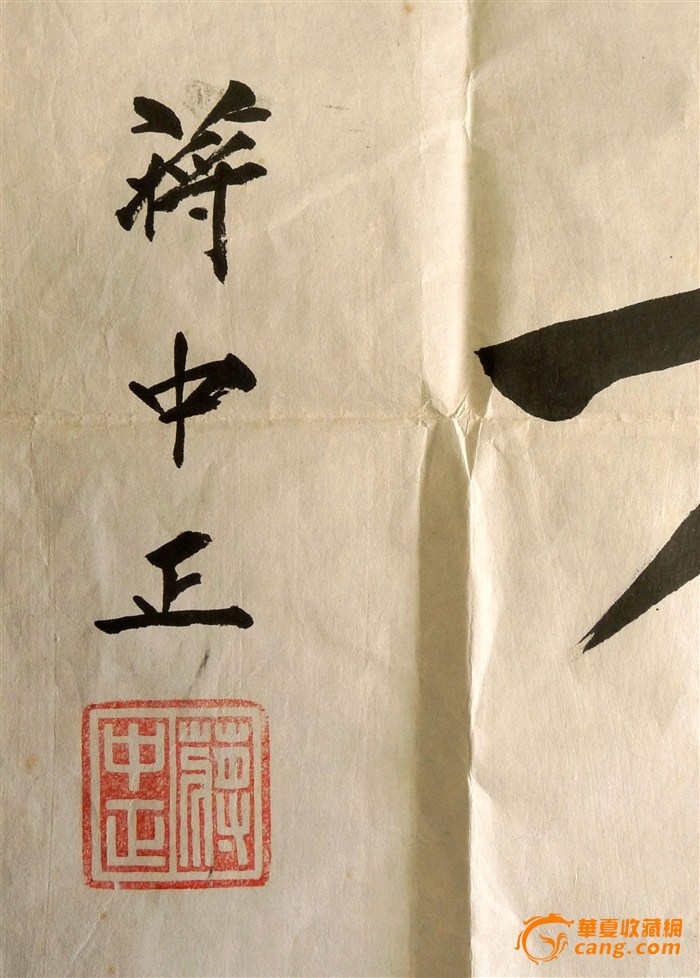 蔣中正
蔣中正
華夏收藏網
cang.com